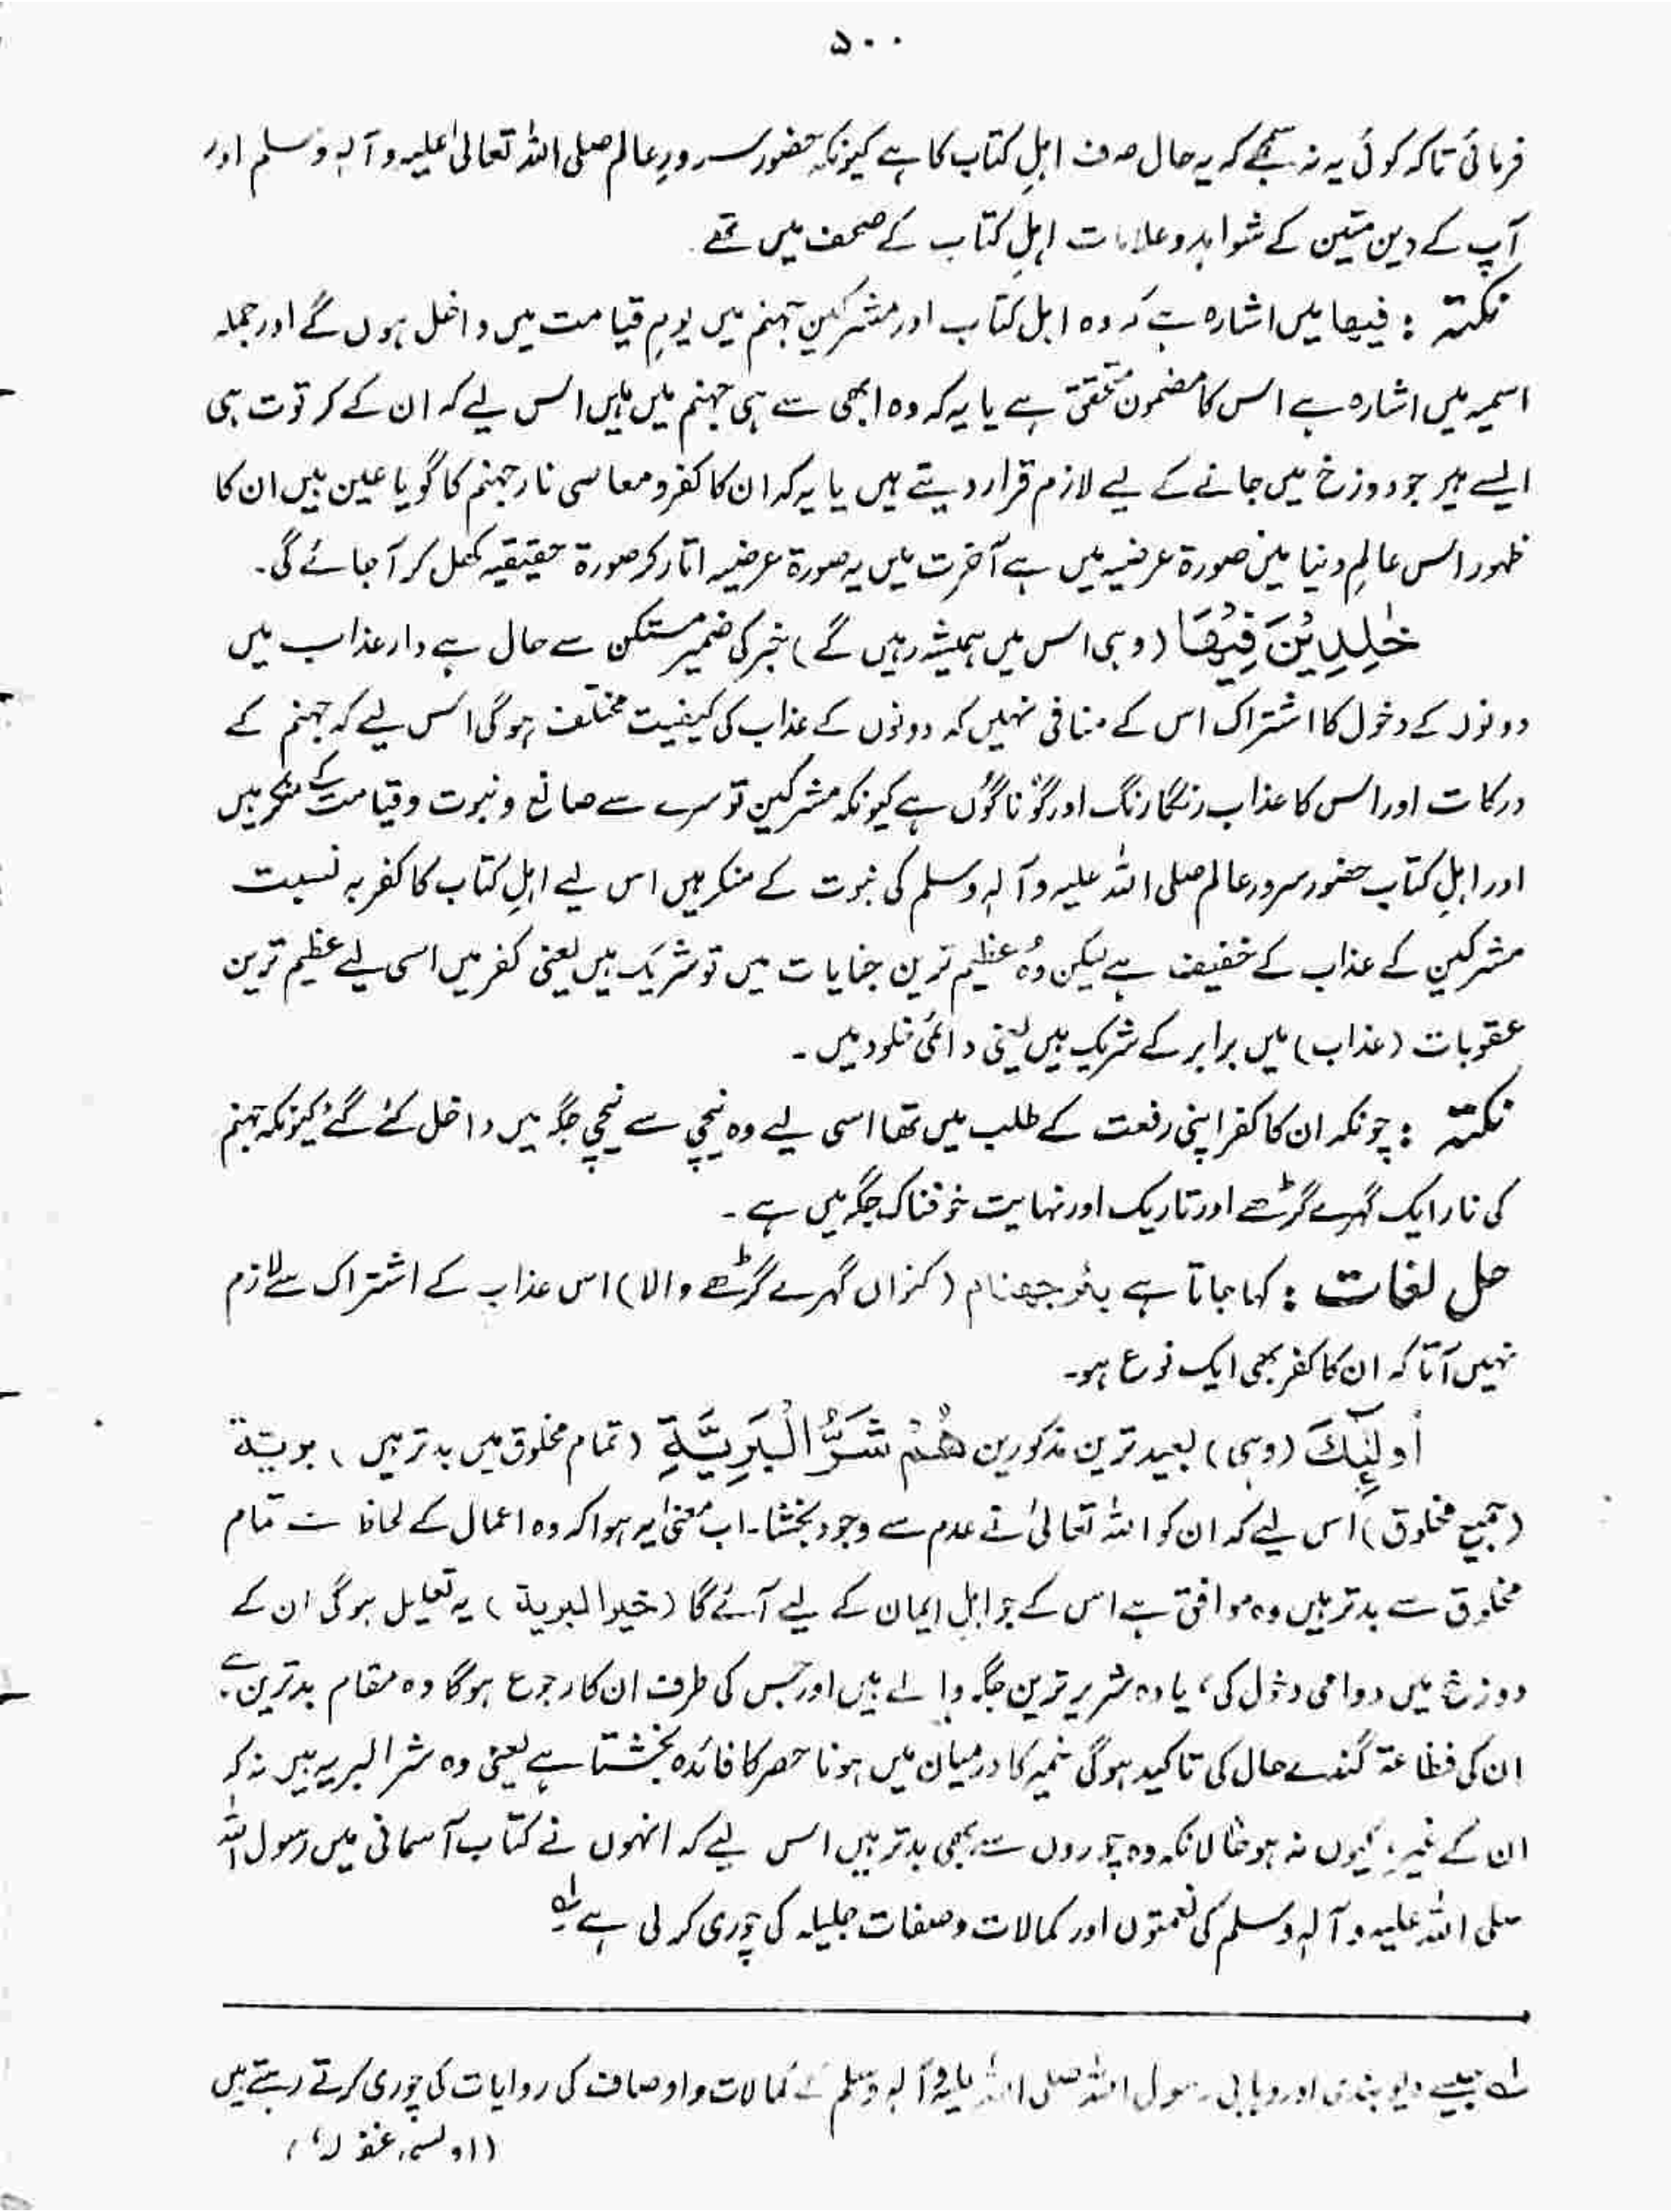 ۵۰۰
فرمائی تاکہ کوئی یہ نہ سمجھے کہ یہ حال صرف اہلِ کتاب کا ہے کیونکہ حضور سرورِ عالم صلی اللہ تعالیٰ علیہ وآلہٖ وسلم اور
آپ کے دین متین کے شواہد و علامات اہلِ کتاب کے صحف میں تھے۔
نکتہ : فیھا میں اشارہ ہے کہ وہ اہل کتاب اور مشرکین جہنم میں یومِ قیامت میں داخل ہوں گے اور جملہ
اسمیہ میں اشارہ ہے اس کا مضمون متحقق ہے یا یہ کہ وہ ابھی سے ہی جہنم میں ہیں اس لیے کہ ان کے کرتوت ہی
ایسے ہیں جو دوزخ میں جانے کے لیے لازم قرار دیتے ہیں یا یہ کہ ان کا کفر و معاصی نار جہنم کا گویا عین ہیں ان کا
ظہور اس عالمِ دنیا میں صورۃ عرضیہ میں ہے آخرت میں یہ صورۃ عرضیہ اتار کر صورۃ حقیقیہ کھل کر آجائے گی۔
خٰلِدِیْنَ فِیْھَا (وہی اس میں ہمیشہ رہیں گے) خبر کی ضمیر مستکن سے حال ہے دار عذاب میں
دونوں کے دخول کا اشتراک اس کے منافی نہیں کہ دونوں کے عذاب کی کیفیت مختلف ہوگی اس لیے کہ جہنم کے
درکات اور اس کا عذاب رنگا رنگ اور گوناگوں ہے کیونکہ مشرکین تو سرے سے صانع و نبوت و قیامت کے منکر ہیں
اور اہلِ کتاب حضور سرور عالم صلی اللہ علیہ وآلہٖ وسلم کی نبوت کے منکر ہیں اس لیے اہلِ کتاب کا کفر بہ نسبت
مشرکین کے عذاب کے خفیف ہے لیکن وہ عظیم ترین جنایات میں تو شریک ہیں یعنی کفر میں اسی لیے عظیم ترین
عقوبات (عذاب) میں برابر کے شریک ہیں یعنی دائمی خلود میں۔
نکتہ : چونکہ ان کا کفر اپنی رفعت کے طلب میں تھا اسی لیے وہ نیچی سے نیچی جگہ میں داخل کئے گئے کیونکہ جہنم
کی نار ایک گہرے گڑھے اور تاریک اور نہایت خوفناک جگہ میں ہے۔
حل لغات : کہا جاتا ہے بئر جھنام (کنواں گہرے گڑھے والا) اس عذاب کے اشتراک سے لازم
نہیں آتا کہ ان کا کفر بھی ایک نوع ہو۔
اُولٰٓئِکَ (وہی) بعید ترین مذکورین ھُمْ شَرُّ الْبَرِیَّۃِ (تمام مخلوق میں بدتر ہیں) بریۃ
(جمیع مخلوق) اس لیے کہ ان کو اللہ تعالیٰ نے عدم سے وجود بخشا۔ اب معنٰی یہ ہوا کہ وہ اعمال کے لحاظ سے تمام
مخلوق سے بدتر ہیں وہ موافق ہے اس کے جو اہلِ ایمان کے لیے آئے گا (خیر البریۃ) یہ تعلیل ہوگی ان کے
دوزخ میں دوامی دخول کی، یا وہ شریر ترین جگہ والے ہیں اور جس کی طرف ان کا رجوع ہوگا وہ مقام بدترین ہے
ان کی فظاعۃ گندے حال کی تاکید ہوگی ضمیر کا درمیان میں ہونا حصر کا فائدہ بخشتا ہے یعنی وہ شر البریہ ہیں نہ کہ
ان کے غیر، کیوں نہ ہو حالانکہ وہ چوروں سے بھی بدتر ہیں اس لیے کہ انہوں نے کتاب آسمانی میں رسول اللہ
صلی اللہ علیہ وآلہٖ وسلم کی نعمتوں اور کمالات و صفات جلیلہ کی چوری کر لی ہے لہ
لہ جیسے دیوبندی اور وہابی رسول اللہ صلی اللہ علیہ وآلہٖ وسلم کے کمالات و اوصاف کی روایات کی چوری کرتے رہتے ہیں
(اویسی غفرلہٗ)